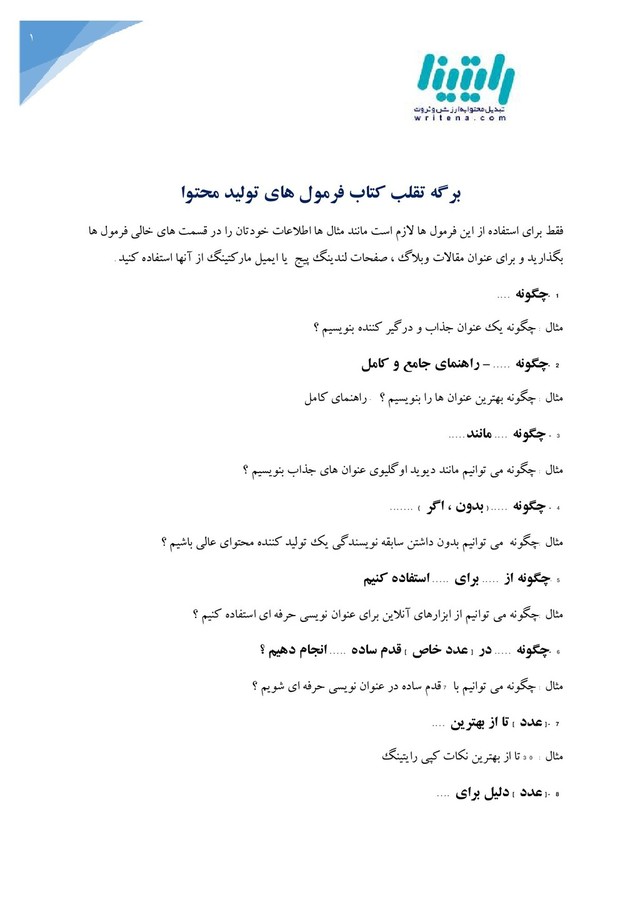 ۱
رایتینا
تبدیل محتوا به ارزش و ثروت
writena.com
برگه تقلب کتاب فرمول های تولید محتوا
فقط برای استفاده از این فرمول ها لازم است مانند مثال ها اطلاعات خودتان را در قسمت های خالی فرمول ها
بگذارید و برای عنوان مقالات وبلاگ ، صفحات لندینگ پیج یا ایمیل مارکتینگ از آنها استفاده کنید .
1 -چگونه ....
مثال : چگونه یک عنوان جذاب و درگیر کننده بنویسیم ؟
2 -چگونه ..... – راهنمای جامع و کامل
مثال : چگونه بهترین عنوان ها را بنویسیم ؟ - راهنمای کامل
3 - چگونه .... مانند.....
مثال : چگونه می توانیم مانند دیوید اوگلیوی عنوان های جذاب بنویسیم ؟
4 - چگونه .....( بدون ، اگر ) .......
مثال :چگونه می توانیم بدون داشتن سابقه نویسندگی یک تولید کننده محتوای عالی باشیم ؟
5 چگونه از ..... برای ..... استفاده کنیم
مثال :چگونه می توانیم از ابزارهای آنلاین برای عنوان نویسی حرفه ای استفاده کنیم ؟
6 -چگونه ..... در ( عدد خاص ) قدم ساده ..... انجام دهیم ؟
مثال : چگونه می توانیم با 7 قدم ساده در عنوان نویسی حرفه ای شویم ؟
7 -( عدد ) تا از بهترین ....
مثال : 30 تا از بهترین نکات کپی رایتینگ
8 -( عدد ) دلیل برای ....